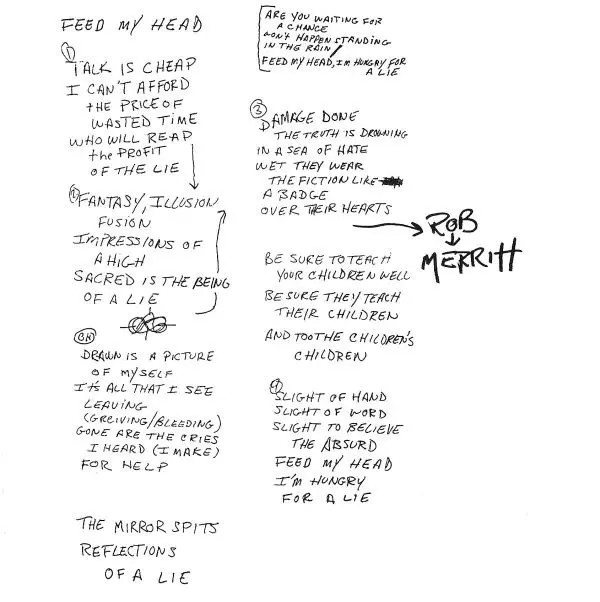 FEED MY HEAD
①
TALK IS CHEAP
I CAN'T AFFORD
the PRICE OF
WASTED TIME
WHO WILL REAP
the PROFIT
OF THE LIE
FANTASY, ILLUSION
FUSION
IMPRESSIONS OF
A HIGH
SACRED IS THE BEING
OF A LIE
CH
DRAWN IS A PICTURE
OF MYSELF
It's ALL THAT I SEE
LEAVING
(GREIVING/BLEEDING)
GONE ARE THE CRIES
I HEARD (I MAKE)
FOR HELP
THE MIRROR SPITS
REFLECTIONS
OF A LIE
ARE YOU WAITING FOR
A CHANCE
WON'T HAPPEN STANDING
IN THE RAIN/
FEED MY HEAD, I'M HUNGRY FOR
A LIE
③
DAMAGE DONE
THE TRUTH IS DROWNING
IN A SEA OF HATE
WET THEY WEAR
THE FICTION LIKE
A BADGE
OVER THEIR HEARTS
ROB
MERRITT
BE SURE TO TEACH
YOUR CHILDREN WELL
BE SURE THEY TEACH
THEIR CHILDREN
AND TOO THE CHILDREN'S
CHILDREN
SLIGHT OF HAND
SLIGHT OF WORD
SLIGHT TO BELIEVE
THE ABSURD
FEED MY HEAD
I'M HUNGRY
FOR A LIE